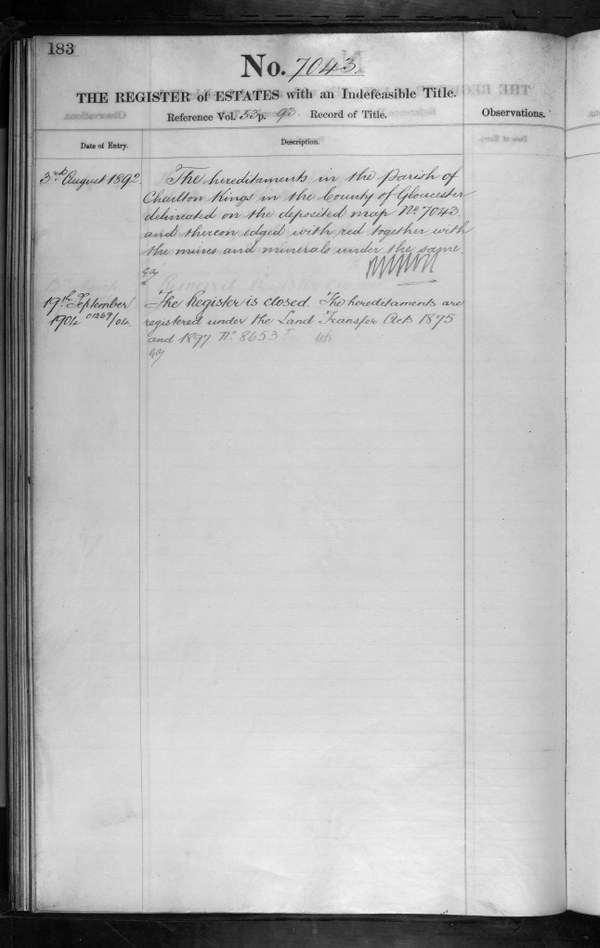 183
No. 7043.
THE REGISTER of ESTATES with an Indefeasible Title.
Reference Vol. 53 p. 93 Record of Title.
Observations.
Date of Entry.
Description.
3rd August 1892.
The hereditaments in the Parish of
Charlton Kings in the County of Gloucester
delineated on the deposited map No. 7043
and thereon edged with red together with
the mines and minerals under the same
19th September
1904 01369/04.
The Register is closed The hereditaments are
registered under the Land Transfer Acts 1875
and 1897 No. 8653